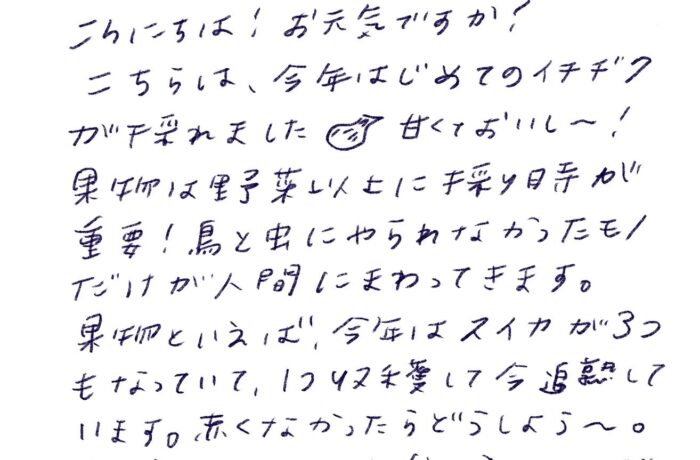 こんにちは！お元気ですか？
こちらは、今年はじめてのイチヂク
が採れました 甘くておいし〜！
果物は野菜以上に採り時が
重要！鳥と虫にやられなかったモノ
だけが人間にまわってきます。
果物といえば、今年はスイカが3つ
もなっていて、1つ収穫して今追熟して
います。赤くなかったらどうしよう〜。